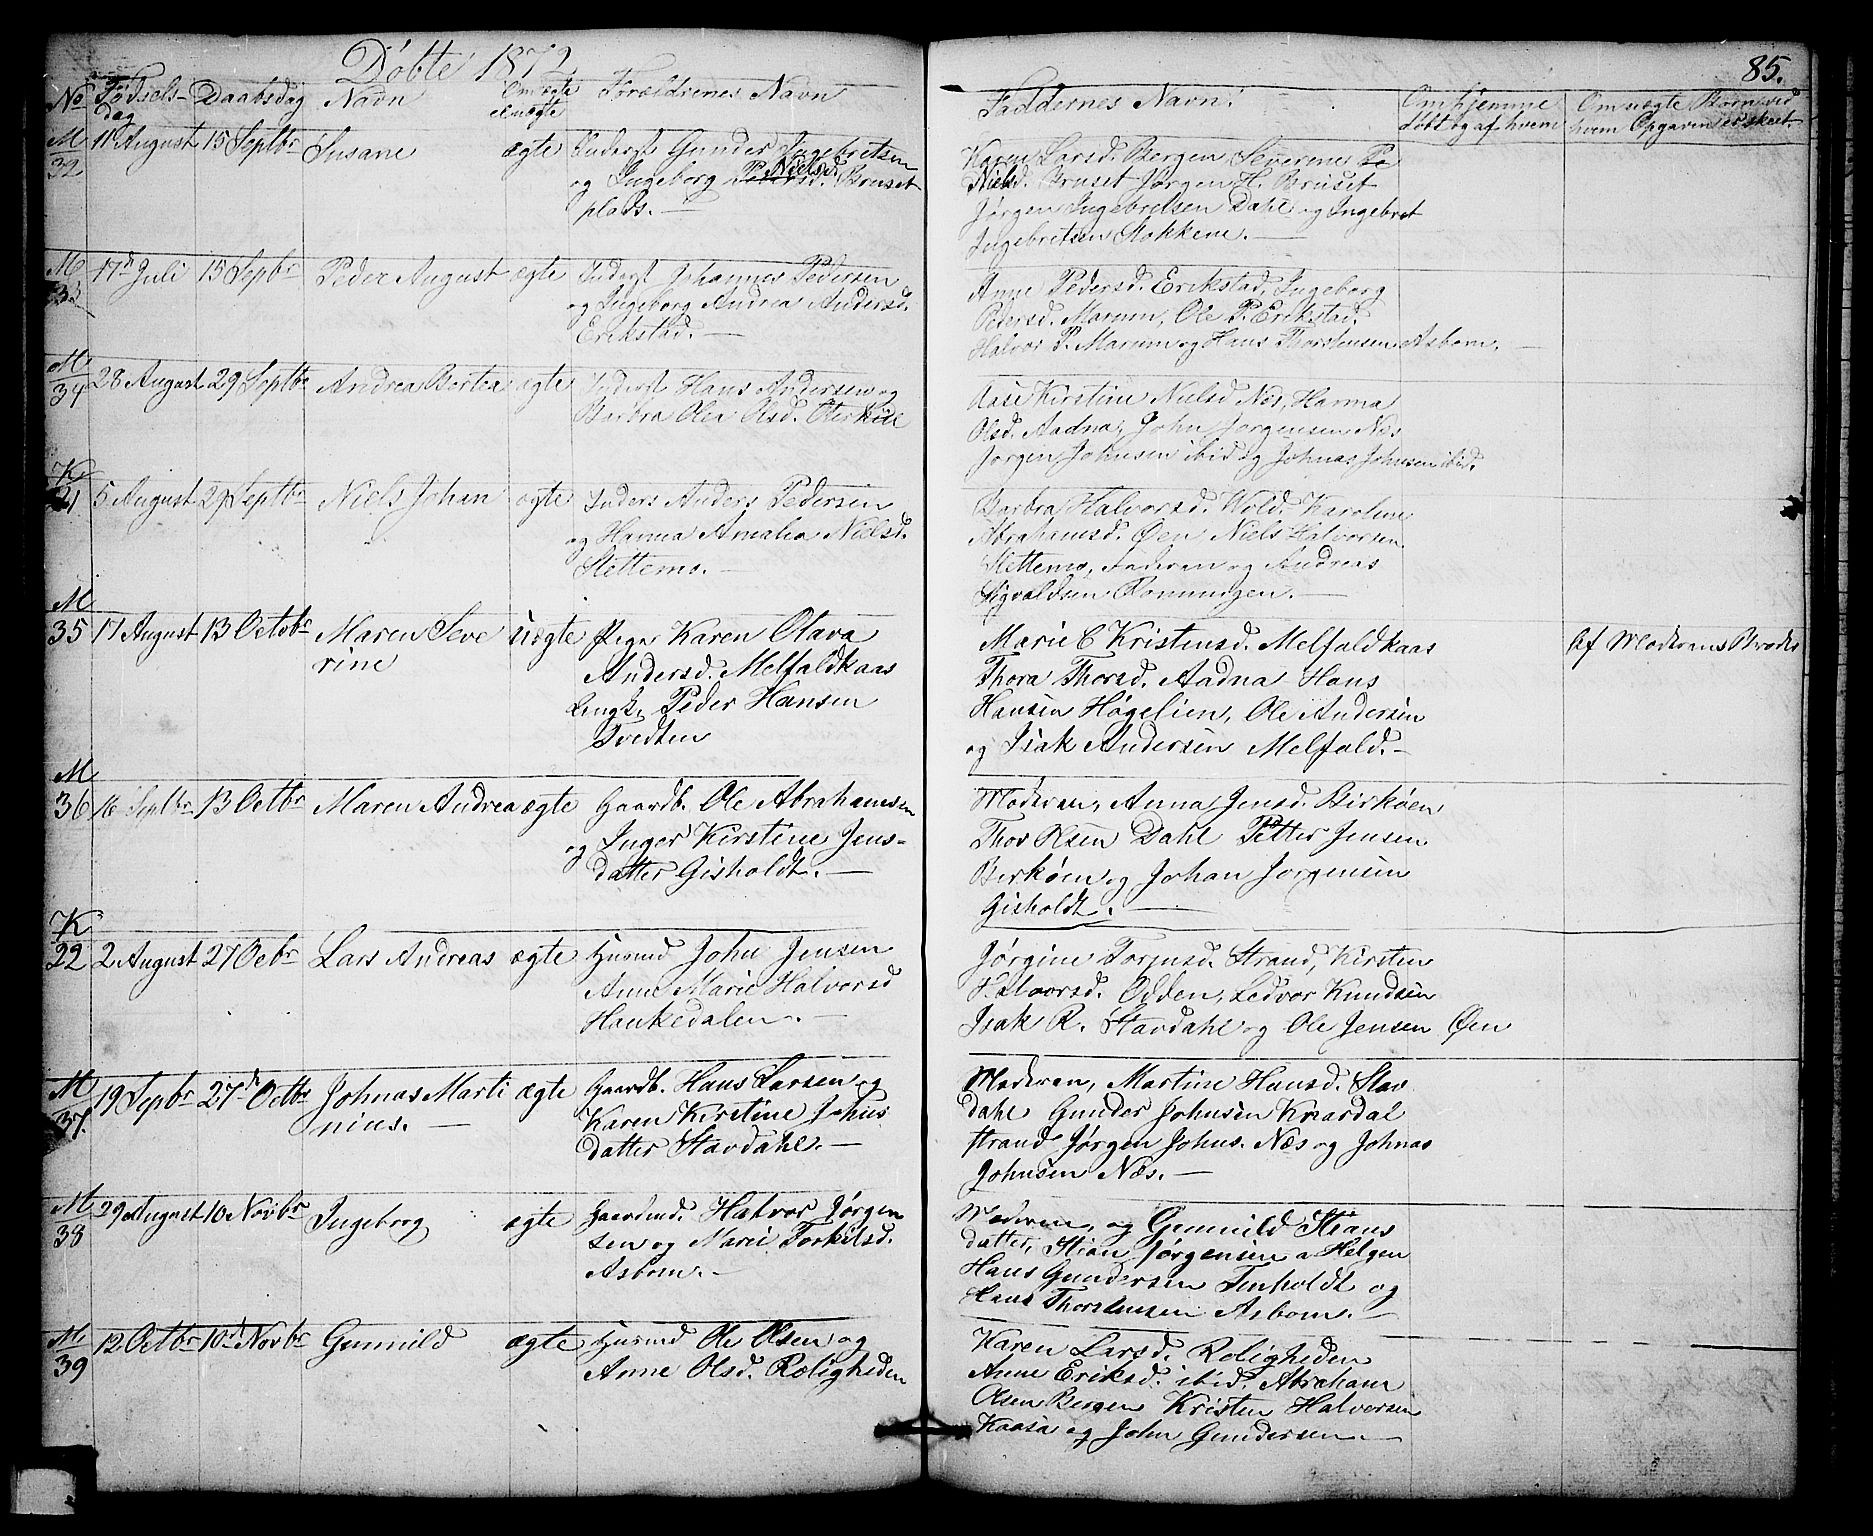 Døbte 1872
No Fødsels-dag Daabsdag Navn Om ægte el uægte Forældrenes Navn
M 32 11 August 15 Septbr Susane ægte Inderst Gunder Ingebretsen
og Ingeborg Nielsd. Bruset
plads. —
M 33 17d Juli 15 Sepbr Peder August ægte Inderst Johannes Pedersen
og Ingeborg Andrea Andersd.
Erikstad. —
M 34 28 August 29 Septbr Andrea Bertea ægte Inderst Hans Andersen og
Barbra Olea Olsd. Oterkiil
K 21 5 August 29 Septbr Niels Johan ægte Inders Anders Pedersen
og Hanna Amalia Nielsd.
Slettemo. —
M 35 17 August 13 Octobr Maren Seve uægte Pige Karen Olava
rine Andersd. Melfaldkaas
Ungk. Peder Hansen
Tvedten
M 36 16 Septbr 13 Octbr Maren Andrea ægte Gaardb. Ole Abrahamsen
og Inger Kirstine Jens-
datter Gisholdt. —
K 22 2 August 27 Ocbr Lars Andreas ægte Husmd John Jensen
Anne Marie Halvorsd
Haukedalen. —
M 37. 19 Sepbr 27d Octbr Johnas Marti ægte Gaardb. Hans Larsen og
nius. — Karen Kirstine Johns
datter Stavdahl. —
M 38 29 August 10 Novbr Ingeborg ægte Gaardmd. Halvor Jørgen
sen og Marie Torkilsd.
Asbom. —
M 39 12 Octbr 10d Novbr Gunnild ægte Husmd Ole Olsen og
Anne Olsd. Roligheden
85.
Faddernes Navn. Om hjemme døbt og af hvem Om uægte Børn ved hvem Opgaven er skeet.
Karen Larsd. Bergen Severine Pe
Nielsd. Bruset Jørgen H. Bruset
Jørgen Ingebretsen Dahl og Ingebret
Ingebretsen Stokkene. —
Anne Pedersd. Erikstad, Ingeborg
Pedersd. Marum, Ole P. Erikstad.
Halvor P. Marum og Hans Thorstensen Asbom. —
Aase Kirstine Nielsd Næs, Hanna
Olsd. Aadna, John Jørgensen Næs
Jørgen Johnsen ibid og Johnas Johnsen ibid.
Barbra Halvorsd. Wold. Karoline
Abrahamsd. Øen Niels Halvorsen
Slettemo, Faderen og Andreas
Sigvaldsen Romundgen. —
Marie C Kristensd. Melfaldkaas Af Moderens Broder
Thora Thorsd. Aadna Hans
Hansen Høgelien, Ole Andersen
og Isak Andersen Melfald. —
Moderen, Anna Jensd. Birkøen
Thov Olsen Dahl Petter Jensen
Berkøen og Johan Jørgensen
Gisholdt. —
Jørgine Tormsd. Strand, Kirsten
Halvorsd. Odden, Ledvor Knudsen
Isak R. Stavdahl og Ole Jensen Øen
Moderen, Martine Hansd. Stav
dahl Gunder Johnsen Knardal
strand Jørgen Johns. Næs og Johnas
Johnsen Næs. —
Moderen, og Gunnild Stians
datter, Stian Jørgensen a Helgen
Hans Gundersen Tinholdt og
Hans Thorstensen Asbom. —
Karen Larsd. Roligheden
Anne Eriksd. ibid. Abraham
Olsen Bergen Kristen Halvorsen
Kaasa og John Gundersen. —